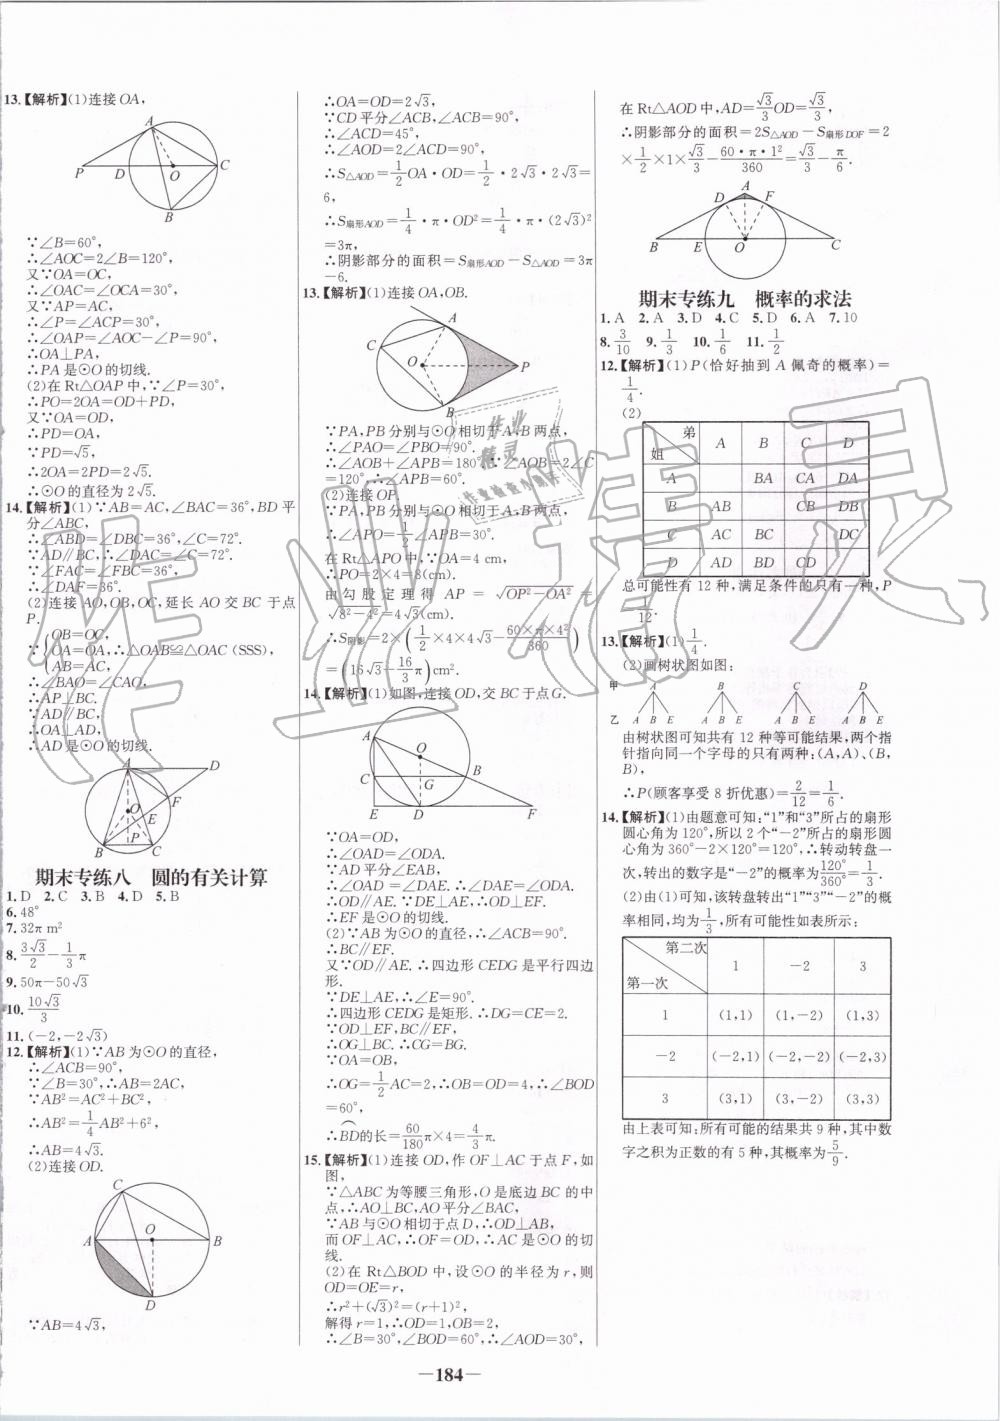 13.【解析】(1)连接OA,
A
P
D
O
C
B
∵∠B=60°,
∴∠AOC=2∠B=120°,
又∵OA=OC,
∴∠OAC=∠OCA=30°,
又∵AP=AC,
∴∠P=∠ACP=30°,
∴∠OAP=∠AOC-∠P=90°,
∴OA⊥PA,
∴PA是⊙O的切线.
(2)在Rt△OAP中,∵∠P=30°,
∴PO=2OA=OD+PD,
又∵OA=OD,
∴PD=OA,
∵PD=√5,
∴2OA=2PD=2√5.
∴⊙O的直径为2√5.
14.【解析】(1)∵AB=AC,∠BAC=36°,BD平
分∠ABC,
∴∠ABD=∠DBC=36°,∠C=72°.
∵AD∥BC,∴∠DAC=∠C=72°.
∵∠FAC=∠FBC=36°,
∴∠DAF=36°.
(2)连接AO,OB,OC,延长AO交BC于点
P.
OB=OC,
∵{OA=OA,∴△OAB≌△OAC(SSS),
AB=AC,
∴∠BAO=∠CAO,
∴AP⊥BC.
∵AD∥BC,
∴OA⊥AD,
∴AD是⊙O的切线.
A
D
F
O
E
B
P
C
期末专练八 圆的有关计算
1.D 2.C 3.B 4.D 5.B
6.48°
7.32π m²
8. 3√3/2 - 1/3 π
9.50π-50√3
10. 10√3/3
11.(-2,-2√3)
12.【解析】(1)∵AB为⊙O的直径,
∴∠ACB=90°,
∵∠B=30°,∴AB=2AC,
∵AB²=AC²+BC²,
∴AB²=1/4 AB²+6²,
∴AB=4√3.
(2)连接OD.
C
A
O
B
D
∵AB=4√3,
∴OA=OD=2√3,
∵CD平分∠ACB,∠ACB=90°,
∴∠ACD=45°,
∴∠AOD=2∠ACD=90°,
∴S△AOD=1/2 OA·OD=1/2·2√3·2√3=
6,
∴S扇形AOD=1/4·π·OD²=1/4·π·(2√3)²
=3π,
∴阴影部分的面积=S扇形AOD-S△AOD=3π
-6.
13.【解析】(1)连接OA,OB.
A
C
O
P
B
∵PA,PB分别与⊙O相切于A,B两点,
∴∠PAO=∠PBO=90°.
∴∠AOB+∠APB=180°∵∠AOB=2∠C
=120°,∴∠APB=60°.
(2)连接OP,
∵PA,PB分别与⊙O相切于A,B两点,
∴∠APO=1/2∠APB=30°.
在Rt△APO中,∵OA=4 cm,
∴PO=2×4=8(cm).
由勾股定理得AP=√OP²-OA²=
√8²-4²=4√3(cm).
∴S阴影=2×(1/2×4×4√3-60×π×4²/360)
=(16√3-16/3 π)cm².
14.【解析】(1)如图,连接OD,交BC于点G.
A
O
C
G
B
E
D
F
∵OA=OD,
∴∠OAD=∠ODA.
∵AD平分∠EAB,
∴∠OAD=∠DAE.∴∠DAE=∠ODA.
∴OD∥AE.∵DE⊥AE,∴OD⊥EF,
∴EF是⊙O的切线.
(2)∵AB为⊙O的直径,∴∠ACB=90°.
∴BC∥EF.
又∵OD∥AE.∴四边形CEDG是平行四边
形.
∵DE⊥AE,∴∠E=90°.
∴四边形CEDG是矩形.∴DG=CE=2.
∵OD⊥EF,BC∥EF,
∴OG⊥BC.∴CG=BG.
∵OA=OB,
∴OG=1/2 AC=2,∴OB=OD=4,∴∠BOD
=60°,
∴BD的长=60/180 π×4=4/3 π.
15.【解析】(1)连接OD,作OF⊥AC于点F,如
图,
∵△ABC为等腰三角形,O是底边BC的中
点,∴AO⊥BC,AO平分∠BAC,
∵AB与⊙O相切于点D,∴OD⊥AB,
而OF⊥AC,∴OF=OD,∴AC是⊙O的切
线.
(2)在Rt△BOD中,设⊙O的半径为r,则
OD=OE=r,
∴r²+(√3)²=(r+1)²,
解得r=1,∴OD=1,OB=2,
∴∠B=30°,∠BOD=60°,∴∠AOD=30°,
在Rt△AOD中,AD=√3/3 OD=√3/3,
∴阴影部分的面积=2S△AOD-S扇形DOF=2
×1/2×1×√3/3-60·π·1²/360=√3/3-π/6.
A
D
F
B
E
O
C
期末专练九 概率的求法
1.A 2.A 3.D 4.C 5.D 6.A 7.10
8. 3/10 9. 1/3 10. 1/6 11. 1/2
12.【解析】(1)P(恰好抽到A佩奇的概率)=
1/4.
(2)
弟 姐 A B C D
A BA CA DA
B AB CB DB
C AC BC DC
D AD BD CD
总可能性有12种,满足条件的只有一种,P
=1/12.
13.【解析】(1)1/4.
(2)画树状图如图:
甲 A B C D
乙 A B E A B E A B E A B E
由树状图可知共有12种等可能结果,两个指
针指向同一个字母的只有两种:(A,A)、(B,
B),
∴P(顾客享受8折优惠)=2/12=1/6.
14.【解析】(1)由题意可知:“1”和“3”所占的扇形
圆心角为120°,所以2个“-2”所占的扇形圆
心角为360°-2×120°=120°,∴转动转盘一
次,转出的数字是“-2”的概率为120°/360°=1/3.
(2)由(1)可知,该转盘转出“1”“3”“-2”的概
率相同,均为1/3,所有可能性如表所示:
第二次 第一次 1 -2 3
1 (1,1) (1,-2) (1,3)
-2 (-2,1) (-2,-2) (-2,3)
3 (3,1) (3,-2) (3,3)
由上表可知:所有可能的结果共9种,其中数
字之积为正数的有5种,其概率为5/9.
—184—
作业精灵